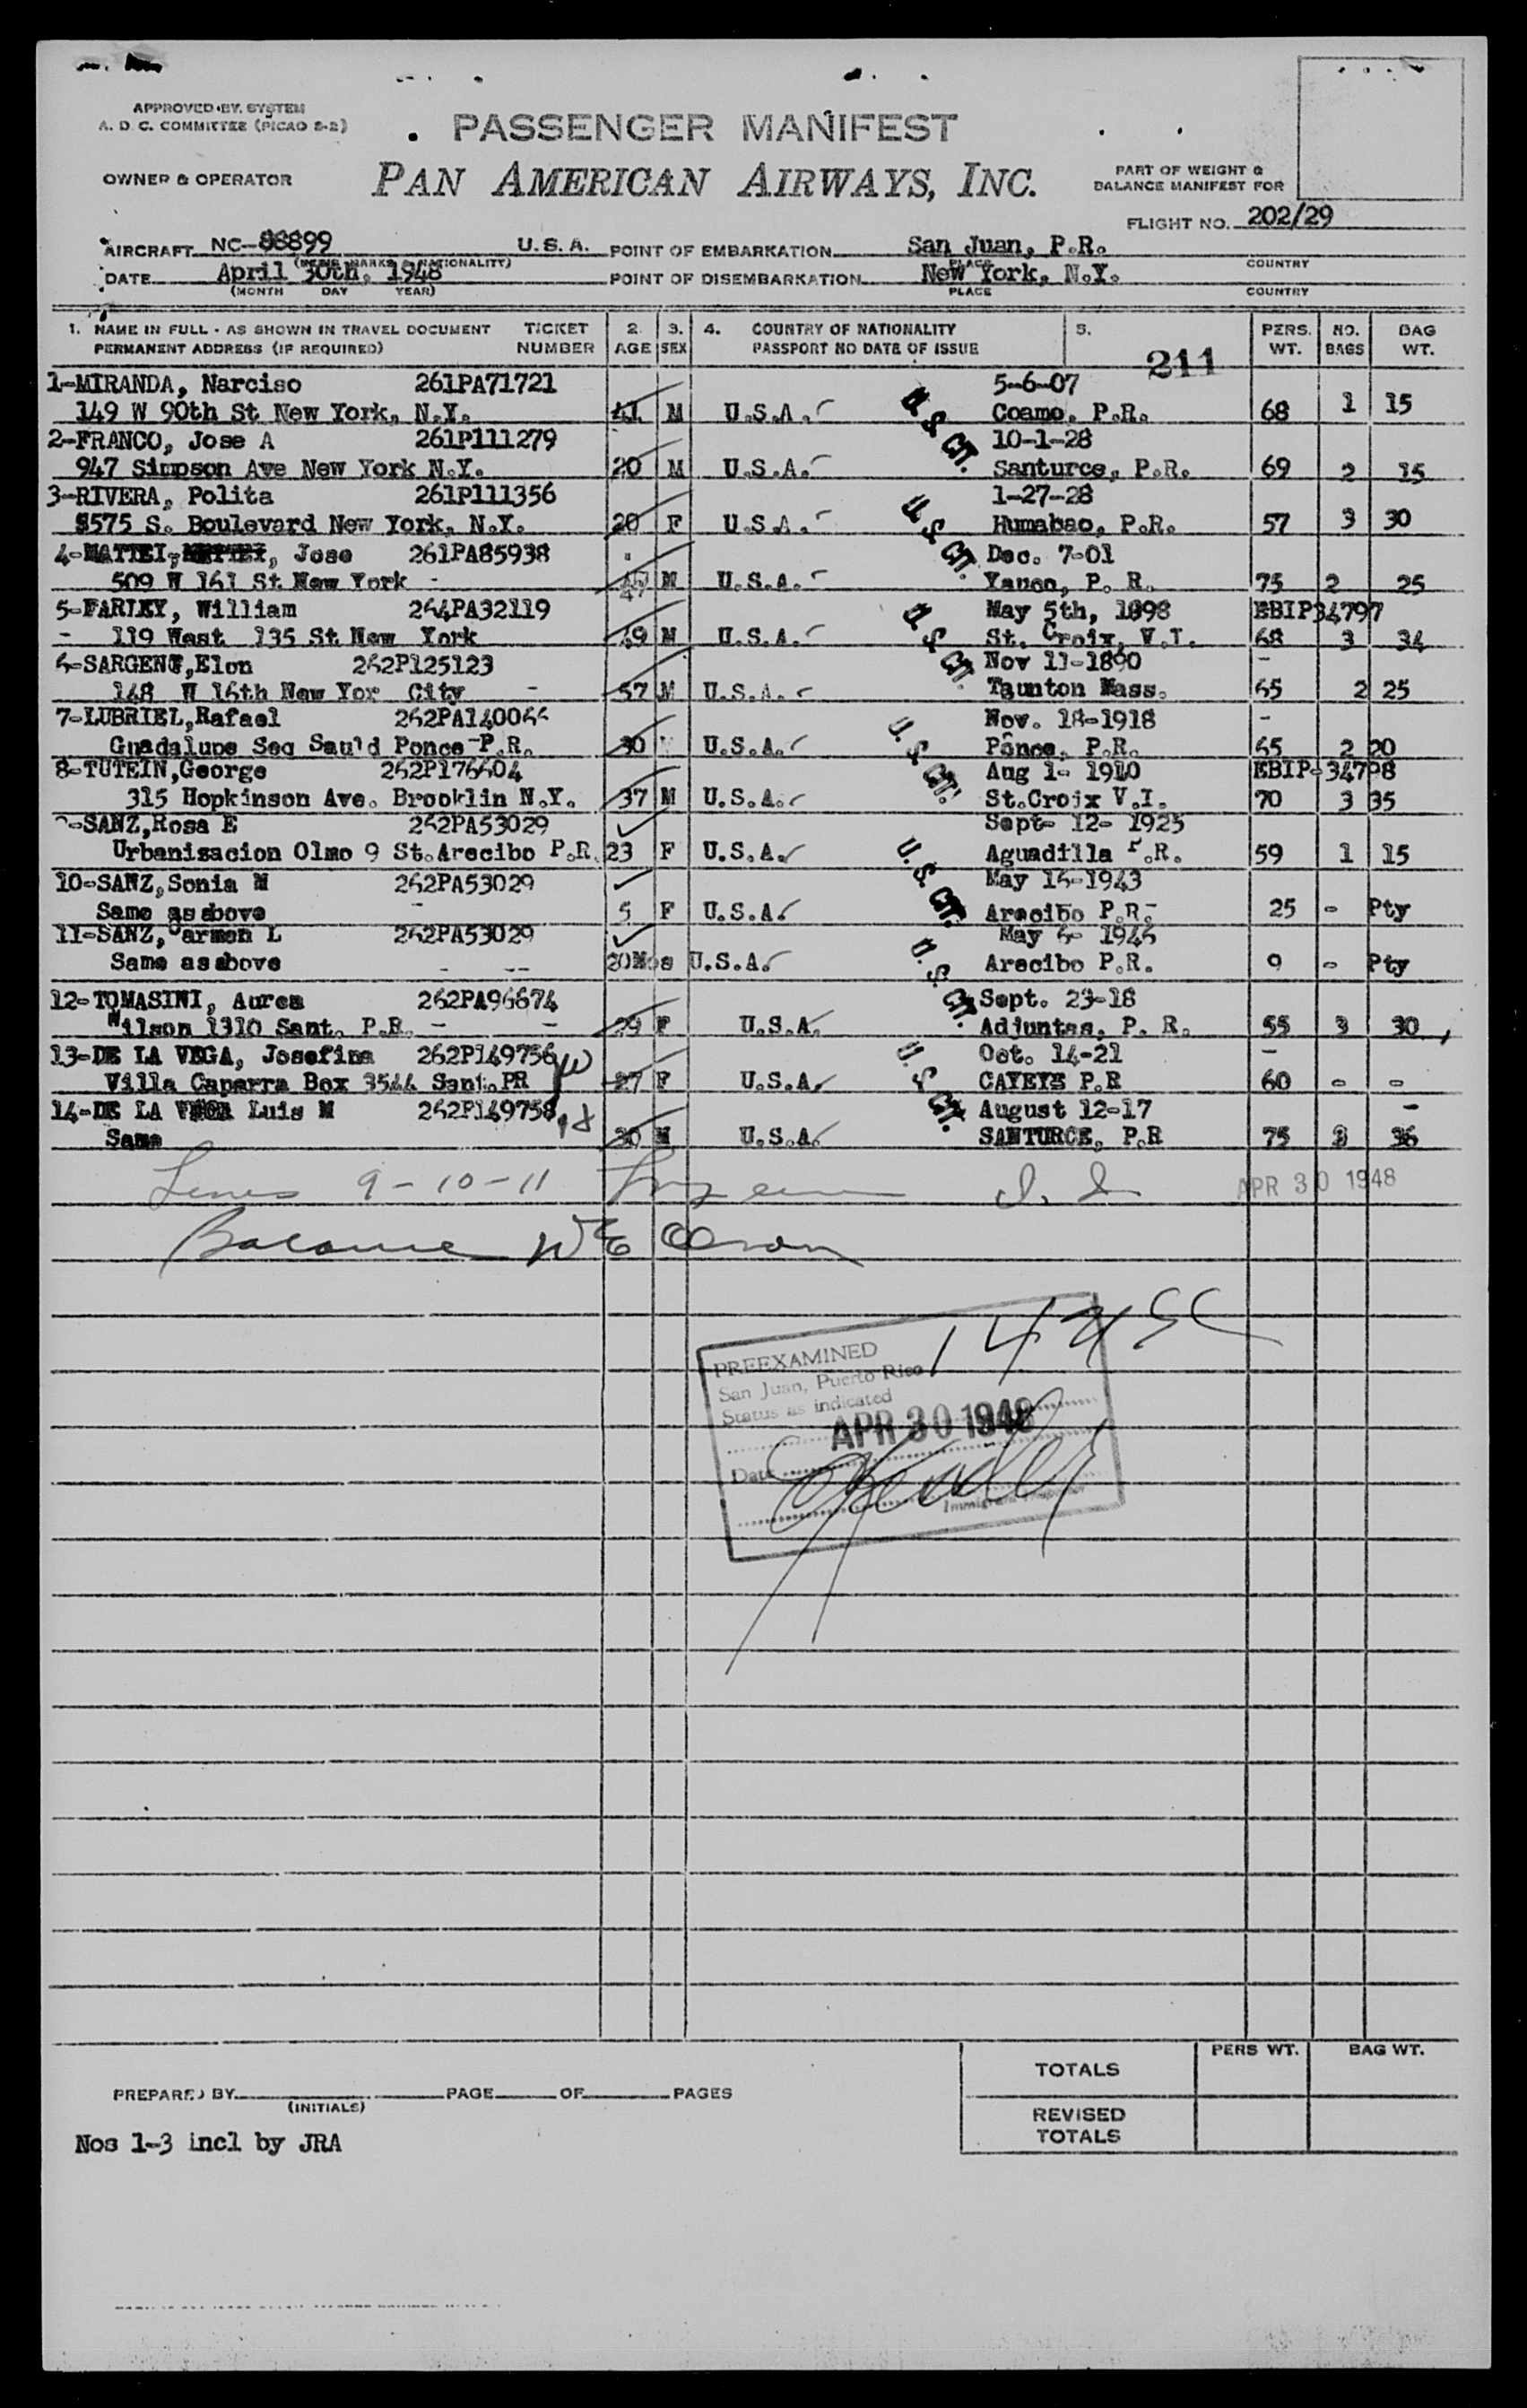 APPROVED BY SYSTEM
A. D. C. COMMITTEE (PICAO 2-2)
PASSENGER MANIFEST
OWNER & OPERATOR
PAN AMERICAN AIRWAYS, INC.
PART OF WEIGHT &
BALANCE MANIFEST FOR
FLIGHT NO. 202/29
AIRCRAFT NC-88899 U. S. A. POINT OF EMBARKATION San Juan, P.R.
MARKS & NATIONALITY) PLACE COUNTRY
DATE April 30th, 1948 POINT OF DISEMBARKATION New York, N.Y.
(MONTH DAY YEAR) PLACE COUNTRY
1. NAME IN FULL - AS SHOWN IN TRAVEL DOCUMENT TICKET 2. 3. 4. COUNTRY OF NATIONALITY 5. PERS. NO. BAG
PERMANENT ADDRESS (IF REQUIRED) NUMBER AGE SEX PASSPORT NO DATE OF ISSUE 211 WT. BAGS WT.
1-MIRANDA, Narciso 261PA71721 5-6-07
149 W 90th St New York, N.Y. 41 M U.S.A. U.S. CT. Coamo, P.R. 68 1 15
2-FRANCO, Jose A 261P111279 10-1-28
947 Simpson Ave New York N.Y. 20 M U.S.A. Santurce, P.R. 69 2 15
3-RIVERA, Polita 261P111356 1-27-28
1575 S. Boulevard New York, N.Y. 20 F U.S.A. U.S. CT. Humabao, P.R. 57 3 30
4-MATTEI, Jose 261PA85938 Dec. 7-01
509 W 161 St New York - 47 M U.S.A. Yauco, P. R. 75 2 25
5-FARLEY, William 264PA32119 May 5th, 1898 EBIP34797
- 119 West 135 St New York 49 M U.S.A. U.S. CT. St. Croix, V.I. 68 3 34
6-SARGENT,Elon 262P125123 Nov 11-1890 -
148 W 16th New Yor City - 57 M U.S.A. Taunton Mass. 65 2 25
7-LUBRIEL,Rafael 262PA140066 Nov. 18-1918 -
Guadalupe Seq Sau'd Ponce P.R. 30 M U.S.A. U.S. CT. Ponce, P.R. 65 2 20
8-TUTEIN,George 262P176604 Aug 1- 1910 EBIP-34798
315 Hopkinson Ave. Brooklin N.Y. 37 M U.S.A. St.Croix V.I. 70 3 35
9-SANZ,Rosa E 262PA53029 Sept- 12- 1925
Urbanisacion Olmo 9 St.Arecibo P.R. 23 F U.S.A. U.S. CT. Aguadilla P.R. 59 1 15
10-SANZ,Sonia M 262PA53029 May 16-1943
Same as above - 5 F U.S.A. Arecibo P.R. 25 - Pty
11-SANZ,Carmen L 262PA53029 May 6- 1946
Same as above - -- 20Mos U.S.A. U.S. CT. Arecibo P.R. 9 - Pty
12-TOMASINI, Aurea 262PA96674 Sept. 23-18
Wilson 1310 Sant. P.R. - - 29 F U.S.A. Adjuntas, P. R. 55 3 30
13-DE LA VEGA, Josefina 262P149756 Oct. 14-21 -
Villa Caparra Box 3544 Sant. PR 27 F U.S.A. U.S. CT. CAYEYS P.R 60 - -
14-DE LA VEGA Luis M 262P149758 August 12-17 -
Same 30 M U.S.A. SANTURCE, P.R 75 3 36
Lines 9-10-11 APR 30 1948
Balance
14 USC
PREEXAMINED
San Juan, Puerto Rico
Status as indicated
APR 30 1948
Date
Immigrant Inspector
PERS WT. BAG WT.
TOTALS
PREPARED BY PAGE OF PAGES
(INITIALS)
REVISED
TOTALS
Nos 1-3 incl by JRA